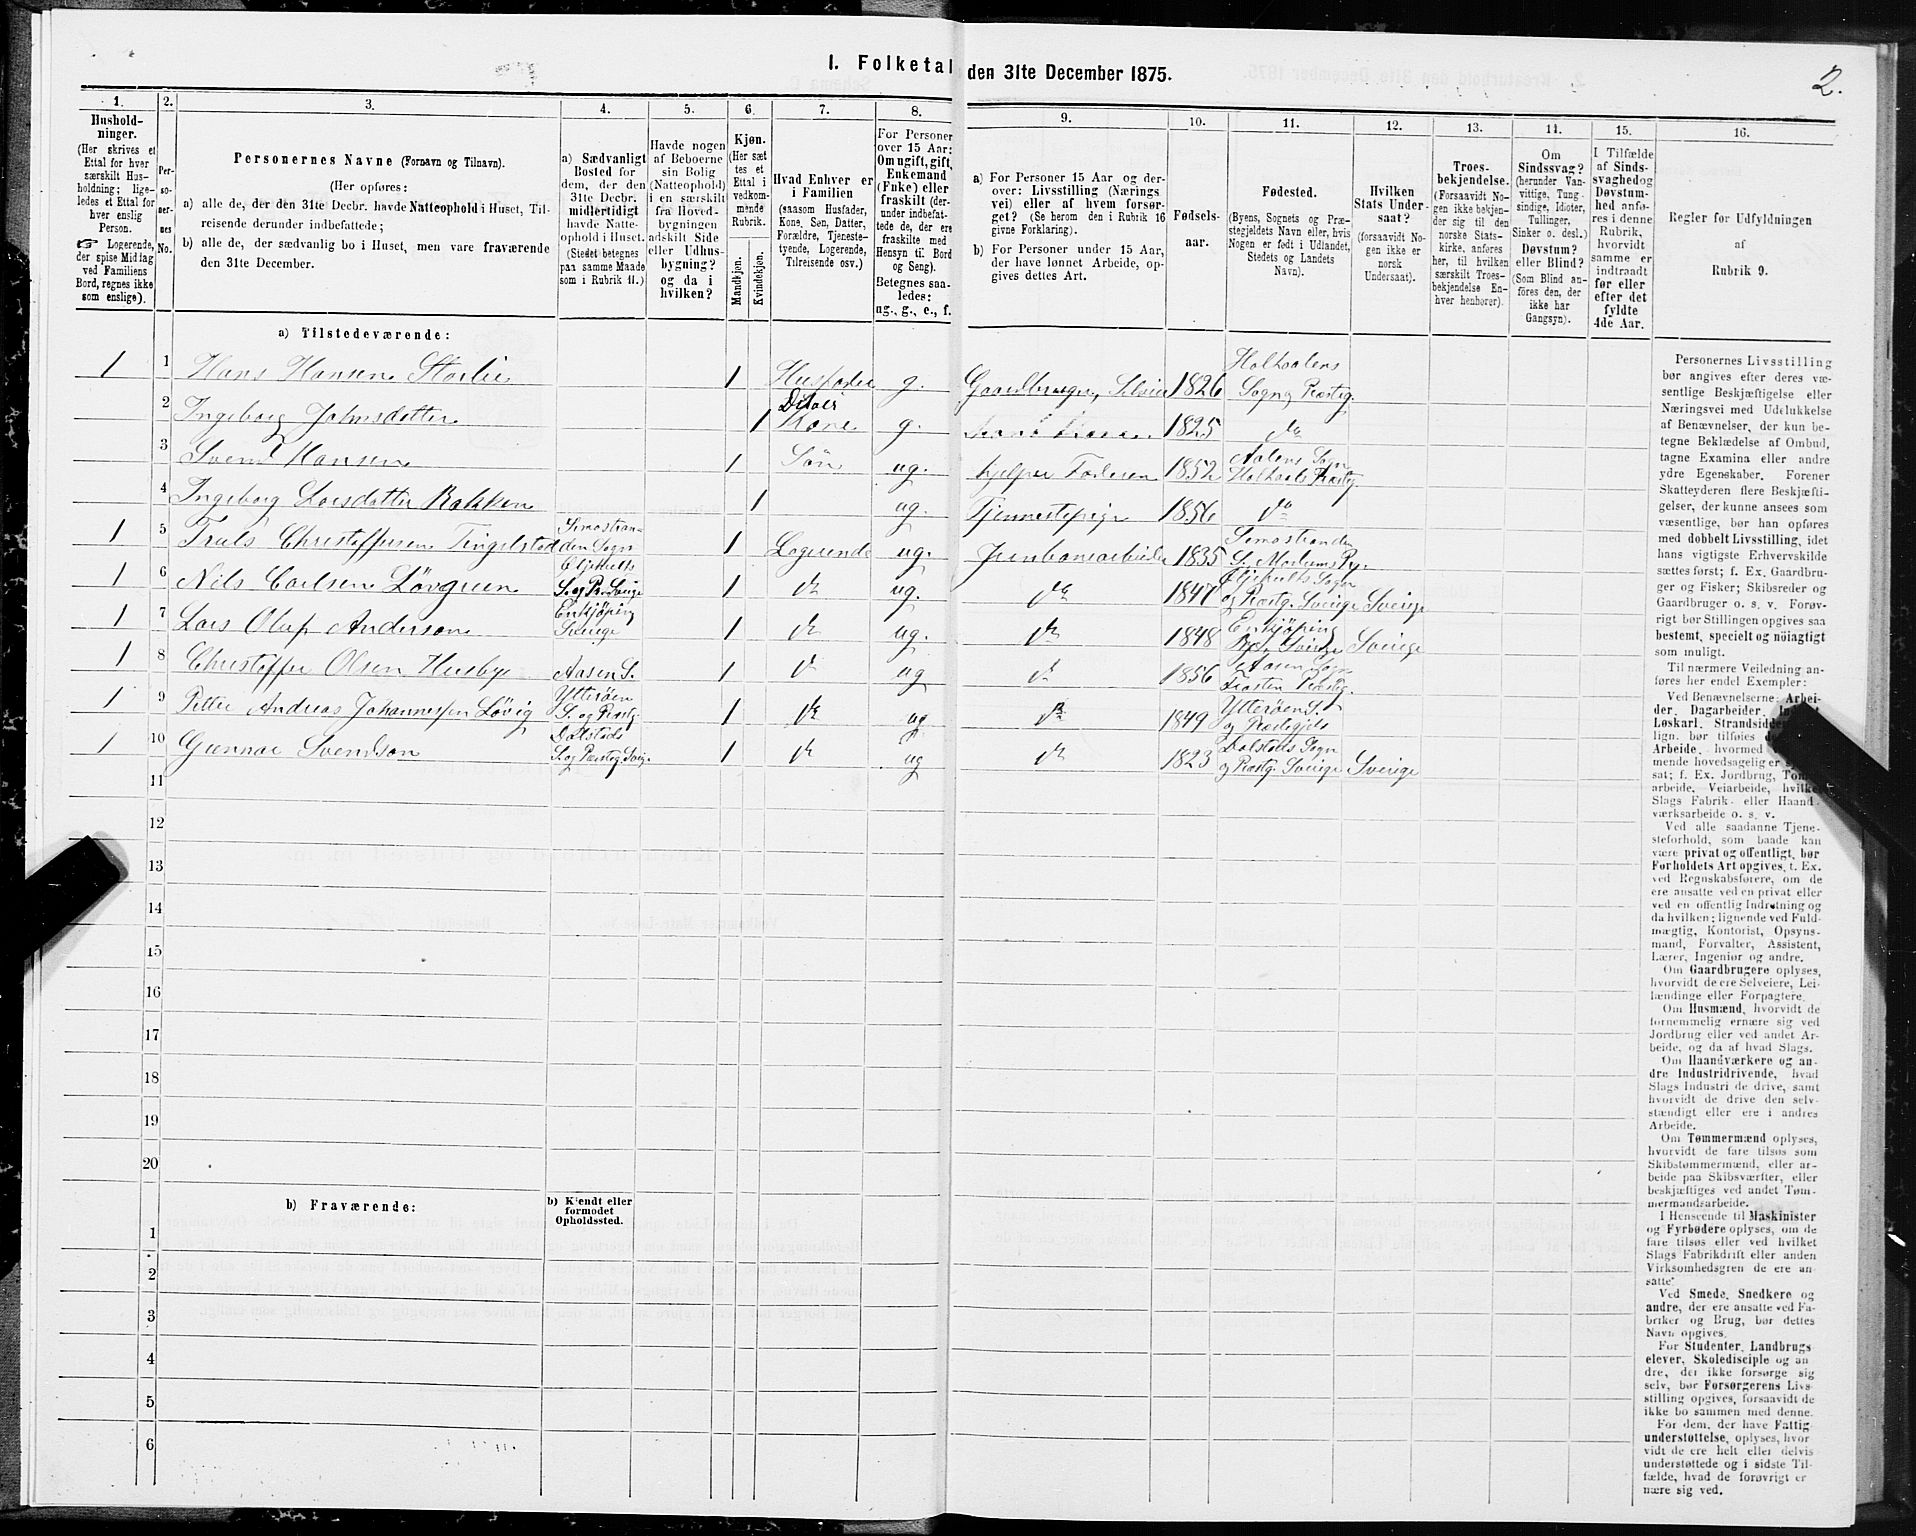 I. Folketal den 31te December 1875.
2.
1.
Hushold-
ninger.
(Her skrives et
Ettal for hver
særskilt Hus-
holdning; lige-
ledes et Ettal for
hver enslig
Person.
☞ Logerende,
der spise Middag
ved Familiens
Bord, regnes ikke
som enslige).
2.
Per-
so-
ner-
nes
No.
3.
Personernes Navne (Fornavn og Tilnavn).
(Her opføres:
a) alle de, der den 31te Decbr. havde Natteophold i Huset, Til-
reisende derunder indbefattede;
b) alle de, der sædvanlig bo i Huset, men vare fraværende
den 31te December.
4.
a) Sædvanligt
Bosted for
dem, der den
31te Decbr.
midlertidigt
havde Natte-
ophold i Huset.
(Stedet betegnes
paa samme Maade
som i Rubrik 11.)
5.
Havde nogen
af Beboerne
sin Bolig
(Natteophold)
i en særskilt
fra Hoved-
bygningen
adskilt Side
eller Udhus-
bygning?
og da i
hvilken?
6.
Kjøn.
(Her sæt-
tes et
Ettal i
vedkom-
mende
Rubrik.
Mandkjøn.
Kvindekjøn.
7.
Hvad Enhver er
i Familien
(saasom Husfader,
Kone, Søn, Datter,
Forældre, Tjeneste-
tyende, Logerende,
Tilreisende osv.)
8.
For Personer
over 15 Aar:
Om ugift, gift,
Enkemand
(Enke) eller
fraskilt (der-
under indbefat-
tede de, der ere
fraskilte med
Hensyn til Bord
og Seng).
Betegnes saa-
ledes:
ug., g., e., f.
9.
a) For Personer 15 Aar og der-
over: Livsstilling (Nærings
vei) eller af hvem forsør-
get? (Se herom den i Rubrik 16
givne Forklaring).
b) For Personer under 15 Aar,
der have lønnet Arbeide, op-
gives dettes Art.
10.
Fødsels-
aar.
11.
Fødested.
(Byens, Sognets og Præ-
stegjeldets Navn eller, hvis
Nogen er født i Udlandet,
Stedets og Landets
Navn).
12.
Hvilken
Stats Under-
saat?
(forsaavidt No-
gen ikke er
norsk
Undersaat).
13.
Troes-
bekjendelse.
(Forsaavidt No-
gen ikke bekjen-
der sig til den
norske Stats-
kirke, anføres
her, til hvilken
særskilt Troes-
bekjendelse En-
hver henhører).
14.
Om
Sindssvag?
(herunder Van-
vittige, Tung-
sindige, Idioter,
Tullinger,
Sinker o. desl.)
Døvstum?
eller Blind?
(Som Blind an-
føres den, der
ikke har
Gangsyn).
15.
I Tilfælde
af Sinds-
svaghed og
Døvstum-
hed anfø-
res i denne
Rubrik,
hvorvidt
samme er
indtraadt
før eller
efter det
fyldte
4de Aar.
16.
Regler for Udfyldningen
af
Rubrik 9.
a) Tilstedeværende:
1 1 Hans Hansen Storlie 1 Husfader g. Gaardbruger, Selveier 1826 Holtaalens Sogn og Præstg.
2 Ingeborg Johnsdatter 1 Ditoes Kone g. 1825 do
3 Svend Hansen 1 Søn ug. hjelper Faderen 1852 Aalens Sogn Holtaals Præstg
4 Ingeborg Larsdatter Bakken 1 ug. Tjenestepige 1856 do
1 5 Truls Christoffersen Tingelstad Simostran-den Sogn 1 Logerende ug. Jernbanearbeider 1835 Simostranden S. Modums Pr.
1 6 Nils Carlsen Løvgreen Eljehults S. og Pr. Sverige 1 do ug. do 1847 Eljehults Sogn og Præstg. Sverige Sverige
1 7 Lars Oluf Anderson Enkjøping Sverige 1 do ug. do 1848 Enkjøping By, Sverige Sverige
1 8 Christoffer Olsen Husby Aasen S. 1 do ug do 1856 Aasen Sogn Frosten Præstg.
1 9 Petter Andreas Johannesen Løvig Ytterøen S. og Præstg. 1 do ug do 1849 Ytterøen S. og Præstegjeld
1 10 Gunnar Svendson Dalstads S. og Præstg. Sverige 1 do ug do 1823 Dalstads Sogn og Præstg. Sverige Sverige
11
12
13
14
15
16
17
18
19
20
b) Fraværende:
b) Kjendt eller
formodet
Opholdssted.
1
2
3
4
5
6
Personernes Livsstilling
bør angives efter deres væ-
sentlige Beskjæftigelse eller
Næringsvei med Udelukkelse
af Benævnelser, der kun be-
tegne Beklædelse af Ombud,
tagne Examina eller andre
ydre Egenskaber. Forener
Skatteyderen flere Beskjæfti-
gelser, der kunne ansees som
væsentlige, bør han opføres
med dobbelt Livsstilling, idet
hans vigtigste Erhvervskilde
sættes først; f. Ex. Gaardbru-
ger og Fisker; Skibsreder og
Gaardbruger o. s. v. Forøv-
rigt bør Stillingen opgives saa
bestemt, specielt og nöiagtigt
som muligt.
Til nærmere Veiledning an-
føres her endel Exempler:
Ved Benævnelserne: Arbei-
der, Dagarbeider,
Løskarl, Strandsidder
lign. bør tilføies
Arbeide, hvormed
mende hovedsagelig er
sat; f. Ex. Jordbrug,
arbeide, Veiarbeide, hvilket
Slags Fabrik- eller Haand-
værksarbeide o. s. v.
Ved alle saadanne Tjene-
steforhold, som baade kan
være privat og offentligt, bør
Forholdets Art opgives, t. Ex.
ved Regnskabsførere, om de
ere ansatte ved en privat eller
ved en offentlig Indretning og
da hvilken; lignende ved Fuld-
mægtig, Kontorist, Opsyns-
mand, Forvalter, Assistent,
Lærer, Ingeniør og andre.
Om Gaardbrugere oplyses,
hvorvidt de ere Selveiere, Lei-
lændinge eller Forpagtere.
Om Husmænd, hvorvidt de
fornemmelig ernære sig ved
Jordbrug eller ved andet Ar-
beide, og da af hvad Slags.
Om Haandværkere og an-
dre Industridrivende, hvad
Slags Industri de drive, samt
hvorvidt de drive den selv-
stændigt eller ere i andres
Arbeide.
Om Tømmermænd oplyses,
hvorvidt de fare tilsøs som
Skibstømmermænd, eller ar-
beide paa Skibsværfter, eller
beskjæftiges ved andet Tøm-
mermandsarbeide.
I Henseende til Maskinister
og Fyrbødere oplyses, om de
fare tilsøs eller ved hvilket
Slags Fabrikdrift eller anden
Virksomhedsgren de ere an-
satte.
Ved Smede, Snedkere og
andre, der ere ansatte ved Fa-
briker og Brug, bør dettes
Navn opgives.
For Studenter, Landbrugs-
elever, Skoledisciple og an-
dre, der ikke forsørge sig
selv, bør Forsørgerens Livs-
stilling opgives, forsaavidt de
ikke bo sammen med denne.
For dem, der have Fattig-
understøttelse, oplyses, hvor-
vidt de ere helt eller delvis
understøttede og i sidste Til-
fælde, hvad de forøvrigt er-
nære sig ved.